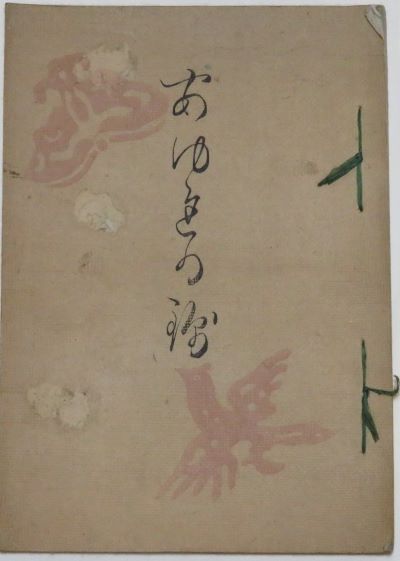 あゆみの跡